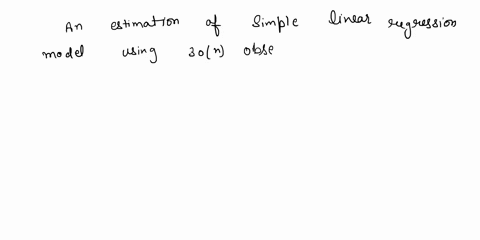 An estimation of simple linear regression
model using 30(n) obse